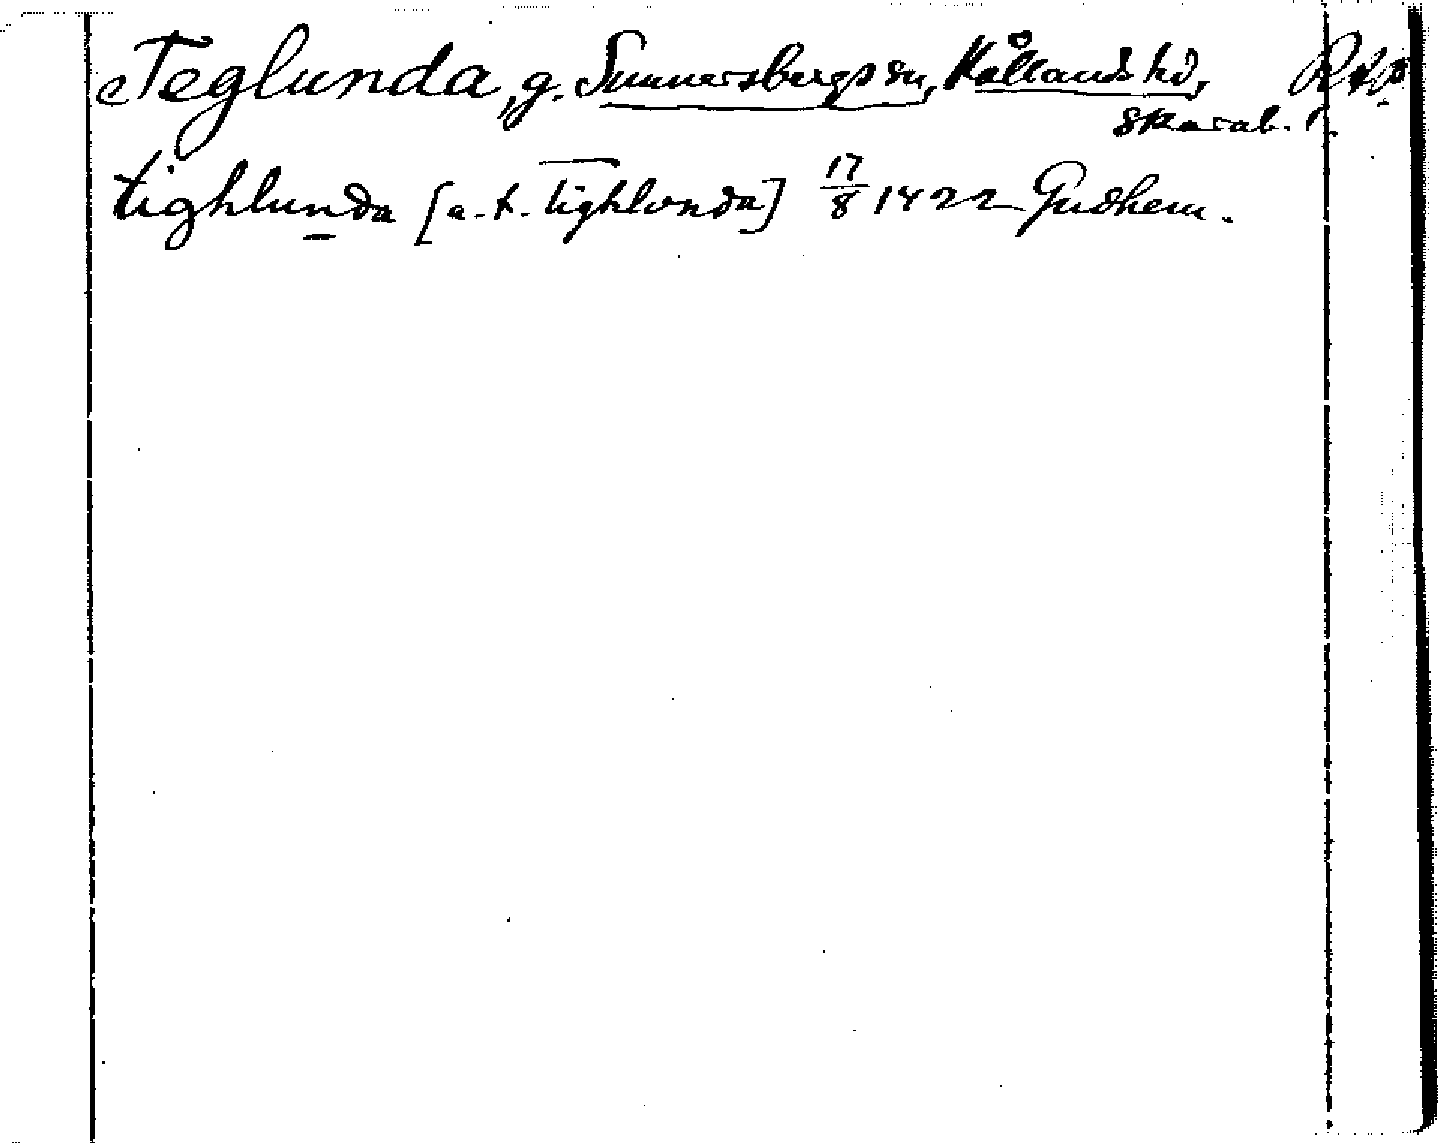 Teglunda, g. Sunnersbergs sn, Kållands hd,
Skarab. l.
tighlunda [a-t. tighlonda] 17/8 1422 Gudhem.